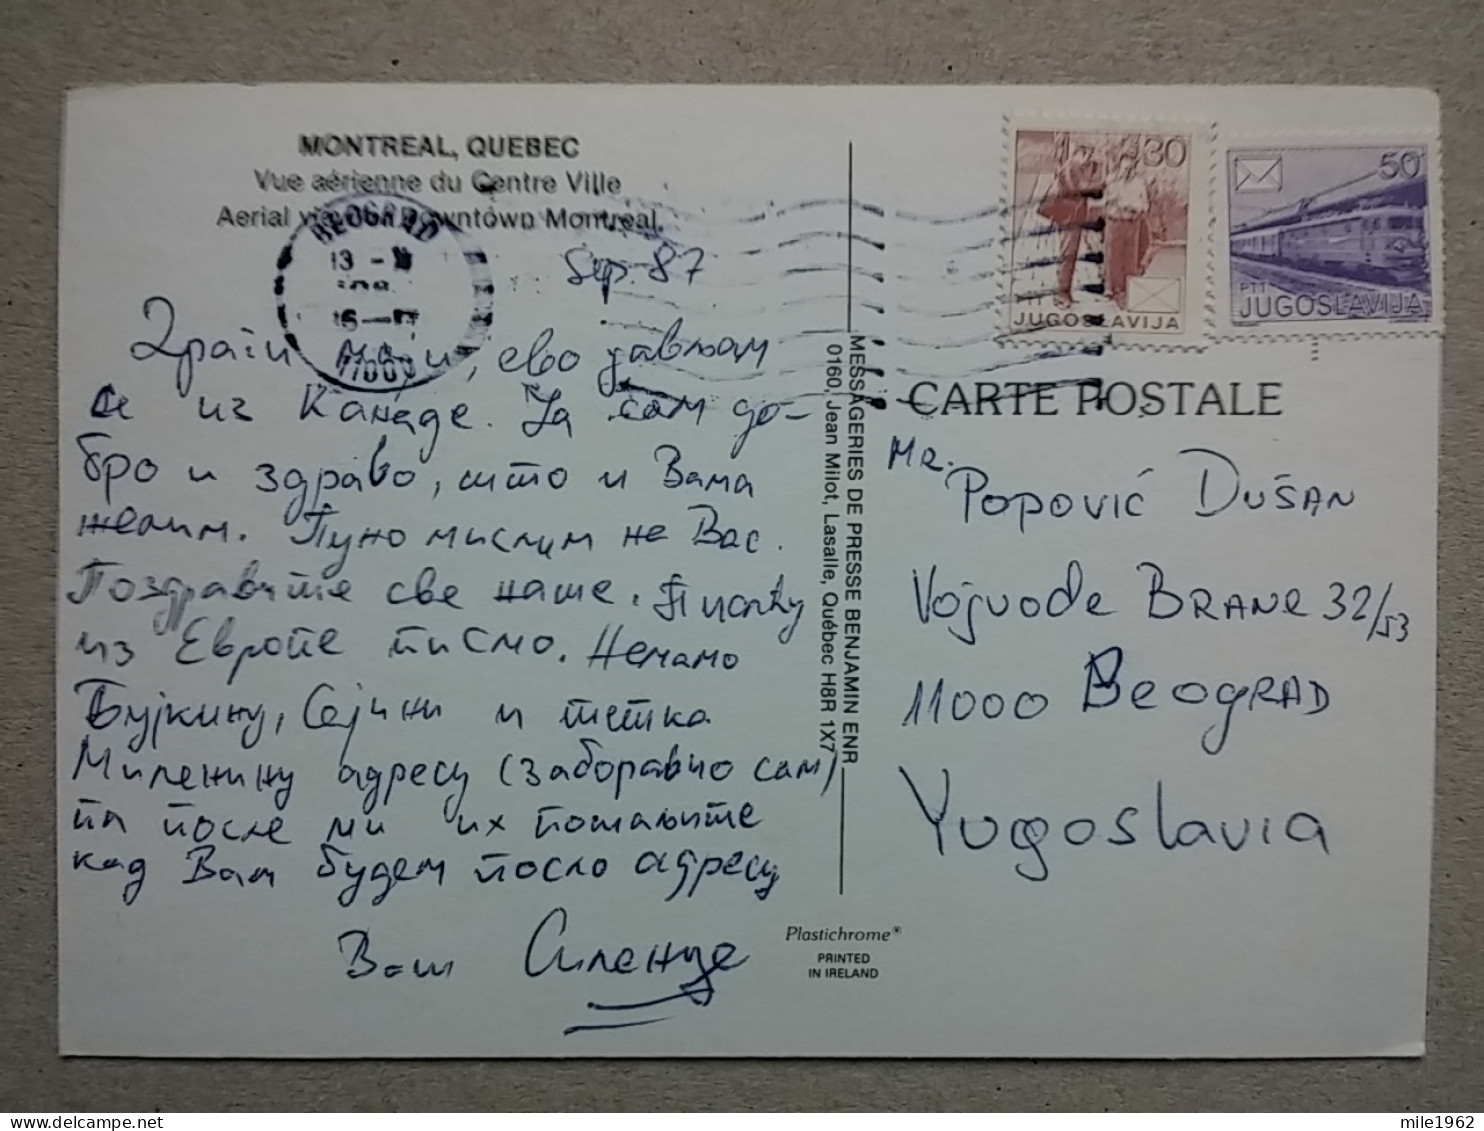 MONTREAL, QUEBEC
Vue aérienne du Centre Ville
Aerial view Downtown Montreal.
BEOGRAD
11000
Sep. 87
Драги моји, ево јављам
се из Канаде. Ја сам до-
бро и здраво, што и Вама
желим. Пуно мислим на Вас.
Поздравите све наше.
из Европе писмо. Немамо
и тетка
Миленину адресу (заборавио сам)
па после ми их пошаљите
кад Вам будем посло адресу
Ваш
MESSAGERIES DE PRESSE BENJAMIN ENR
0160, Jean Milot, Lasalle, Québec H8R 1X7
Plastichrome®
PRINTED
IN IRELAND
30
PTT
JUGOSLAVIJA
50
PTT
JUGOSLAVIJA
CARTE POSTALE
MR.
POPOVIĆ DUŠAN
VOJVODE BRANE 32/53
11000 BEOGRAD
YUGOSLAVIA
mile1962